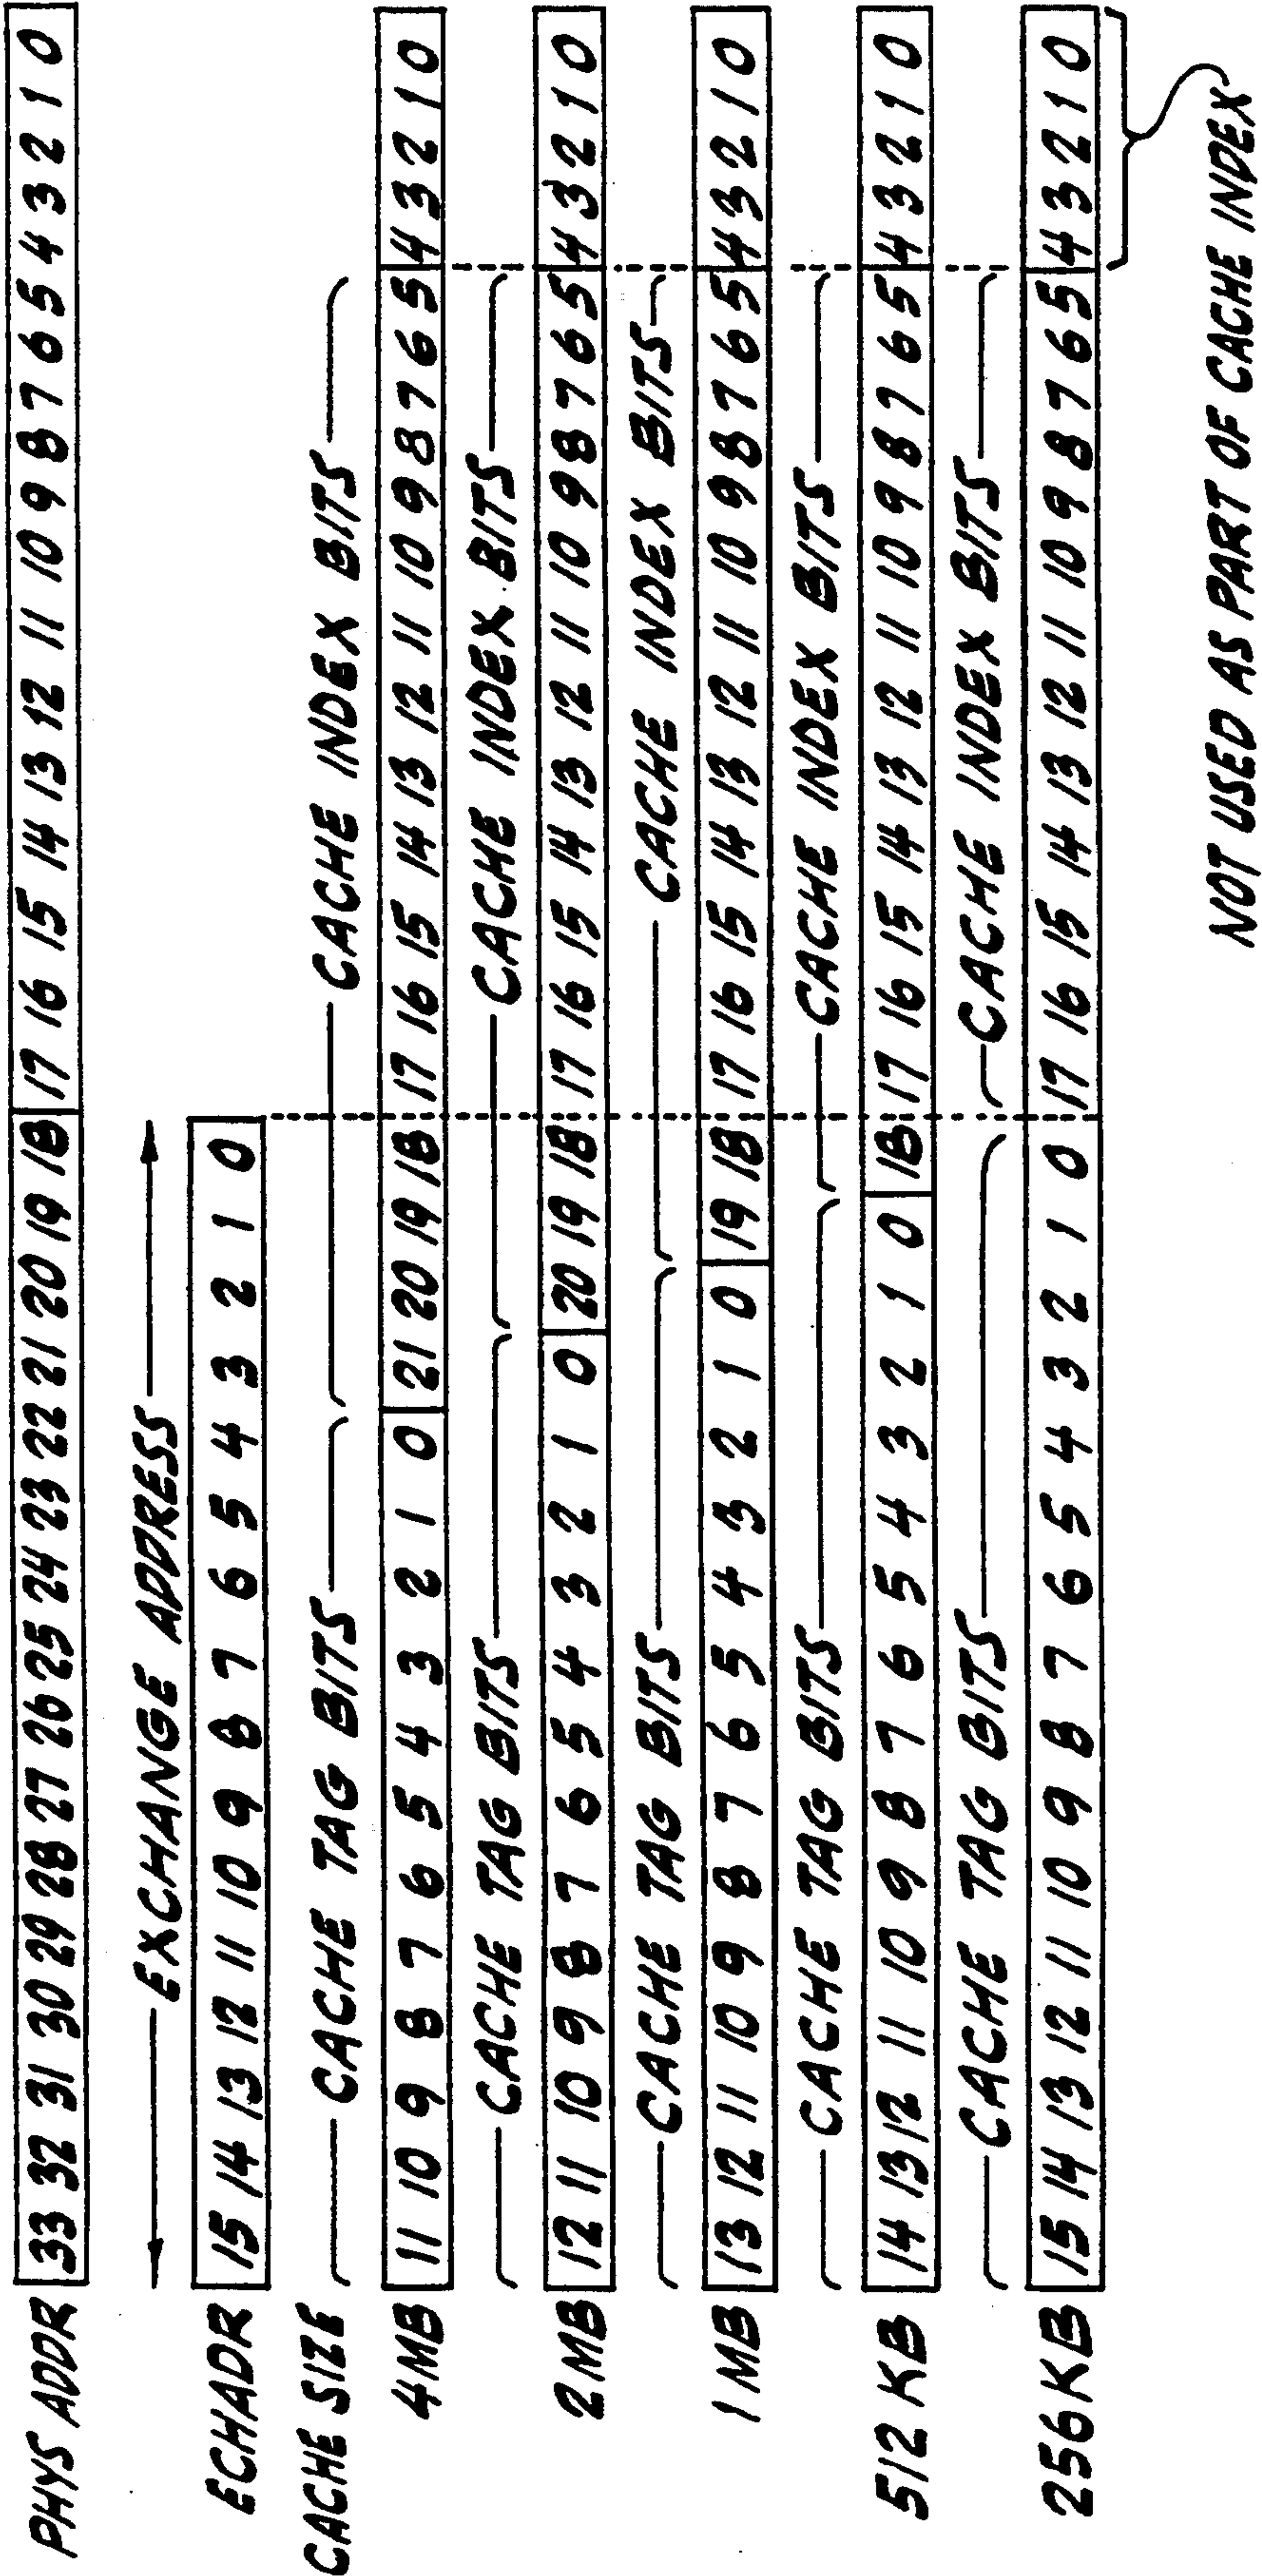 PHYS ADDR 33 32 31 30 29 28 27 26 25 24 23 22 21 20 19 18 17 16 15 14 13 12 11 10 9 8 7 6 5 4 3 2 1 0
EXCHANGE ADDRESS
ECHADR 15 14 13 12 11 10 9 8 7 6 5 4 3 2 1 0
CACHE SIZE CACHE TAG BITS CACHE INDEX BITS
4MB 11 10 9 8 7 6 5 4 3 2 1 0 21 20 19 18 17 16 15 14 13 12 11 10 9 8 7 6 5 4 3 2 1 0
CACHE TAG BITS CACHE INDEX BITS
2MB 12 11 10 9 8 7 6 5 4 3 2 1 0 20 19 18 17 16 15 14 13 12 11 10 9 8 7 6 5 4 3 2 1 0
CACHE TAG BITS CACHE INDEX BITS
1MB 13 12 11 10 9 8 7 6 5 4 3 2 1 0 19 18 17 16 15 14 13 12 11 10 9 8 7 6 5 4 3 2 1 0
CACHE TAG BITS CACHE INDEX BITS
512 KB 14 13 12 11 10 9 8 7 6 5 4 3 2 1 0 18 17 16 15 14 13 12 11 10 9 8 7 6 5 4 3 2 1 0
CACHE TAG BITS CACHE INDEX BITS
256KB 15 14 13 12 11 10 9 8 7 6 5 4 3 2 1 0 17 16 15 14 13 12 11 10 9 8 7 6 5 4 3 2 1 0
NOT USED AS PART OF CACHE INDEX